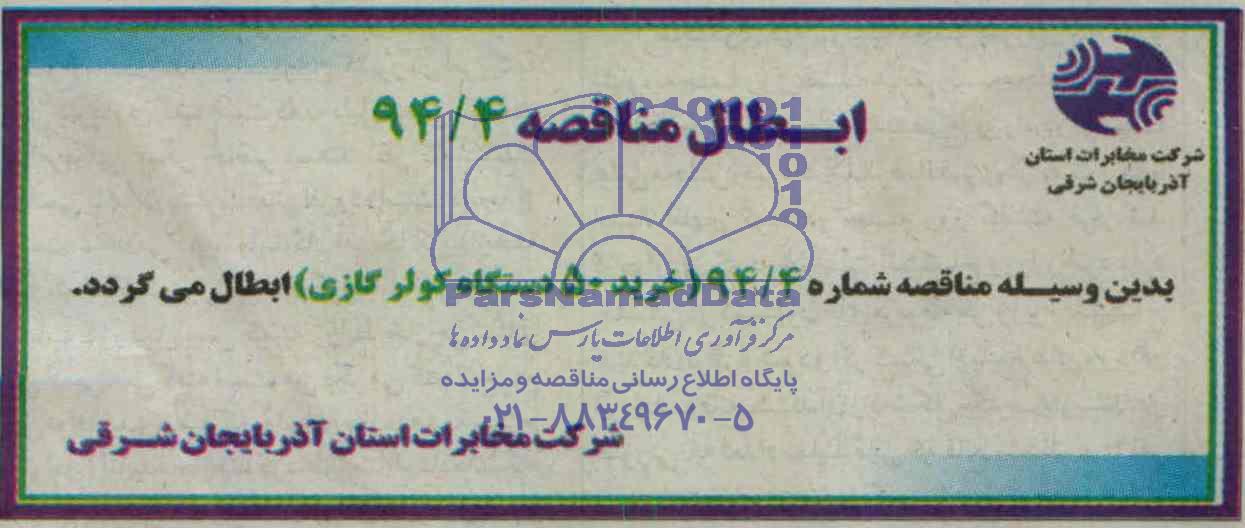 شرکت مخابرات استان
آذربایجان شرقی
ابطال مناقصه ۹۴/۴
بدین وسیله مناقصه شماره ۹۴/۴ (خرید ۵۰ دستگاه کولر گازی) ابطال می گردد.
شرکت مخابرات استان آذربایجان شرقی
010101
101
10
1
10
ParsNamadData
مرکز فرآوری اطلاعات پارس نماد داده ها
پایگاه اطلاع رسانی مناقصه و مزایده
۰۲۱-۸۸۳۴۹۶۷۰-۵